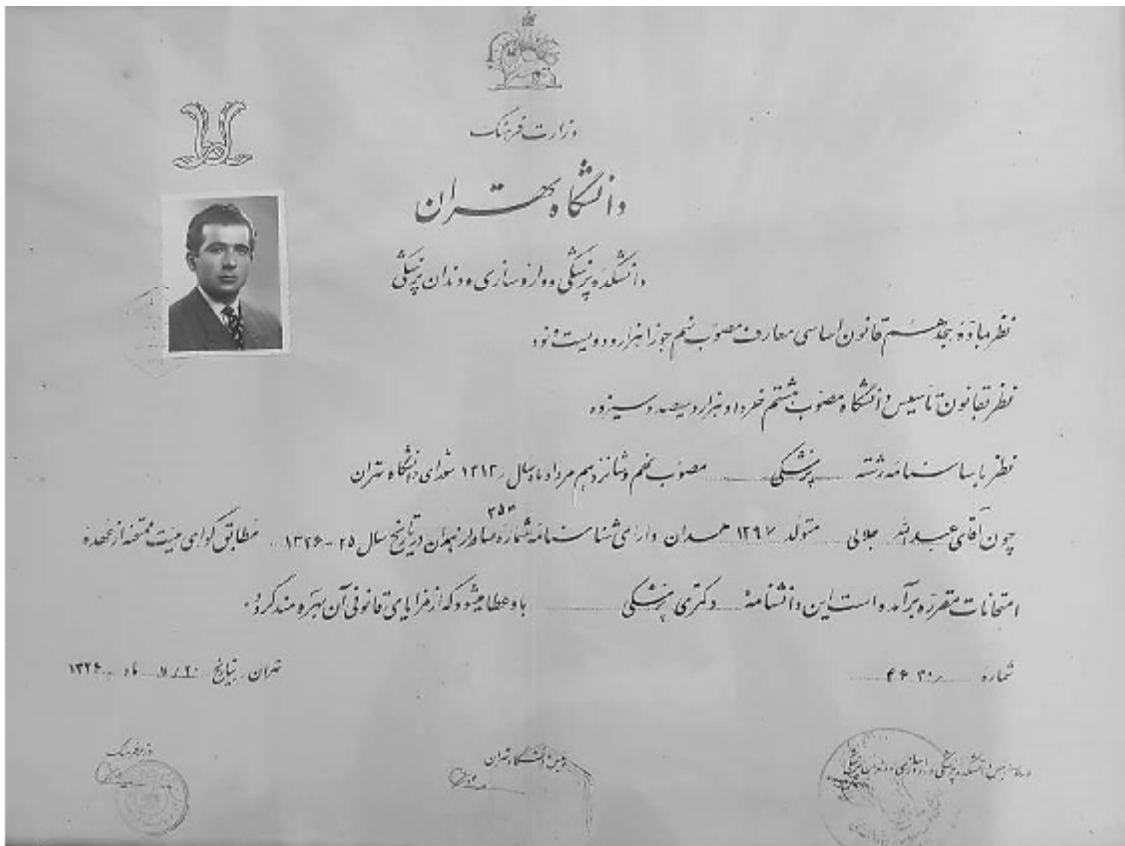 وزارت فرهنگ
دانشگاه تهران
دانشکده پزشکی و داروسازی و دندان پزشکی
نظر بمادّه هجدهم قانون اساسی معارف مصوب نهم جوزا هزار و دویست و نود
نظر بقانون تأسیس دانشگاه مصوب هشتم خرداد هزار و سیصد و سیزده
نظر باساسنامه رشته پزشکی مصوب نهم و شانزدهم مرداد ماه سال ۱۳۱۳ شورای دانشگاه تهران
چون آقای عبدالله جلالی متولد ۱۲۹۷ همدان دارای شناسنامه شماره ۲۵۳ صادر از همدان در تاریخ سال ۲۵-۱۳۲۶ مطابق گواهی هیئت ممتحنه از عهده
امتحانات مقرره برآمده است این دانشنامهٔ دکتری پزشکی باو عطا میشود که از مزایای قانونی آن بهره مند گردد.
شماره تهران بتاریخ ماه ۱۳۲۶
وزیر فرهنگ
رئیس دانشگاه تهران
رئیس دانشکده پزشکی و داروسازی و دندان پزشکی